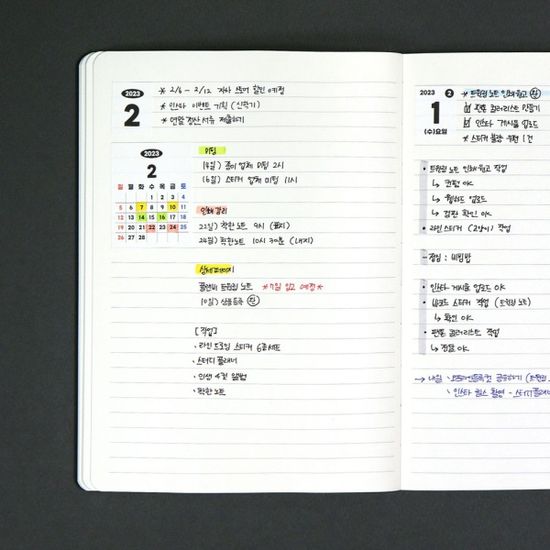 2023
2
* 2/6 - 2/12 자사 스토어 할인 예정
* 인스타 이벤트 기획 (신학기)
* 연말정산 서류 제출하기
2023
2
일 월 화 수 목 금 토
1 2 3 4
5 6 7 8 9 10 11
12 13 14 15 16 17 18
19 20 21 22 23 24 25
26 27 28
미팅
14일) 종이 업체 미팅 2시
16일) 스티커 업체 미팅 11시
인쇄 감리
22일) 착한 노트 9시 (표지)
24일) 착한노트 10시 30분 (내지)
상세페이지
플래너 트윈링 노트 *7일 입고 예정*
10일) 상품등록
[작업]
· 라인 드로잉 스티커 6종세트
· 스터디 플래너
· 인생 4컷 앨범
· 착한 노트
2023 2
1
(수)요일
* 트윈링 노트 인쇄 입고
판톤 컬러리스트 만들기
인스타 게시물 업로드
* 스티커 불량 1건
· 트윈링 노트 작업
↳ 컨펌 OK
↳ 웹하드 업로드
↳ 확인 OK
· 라인 스티커 (고양이) 작업
- 점심 : 비빔밥
· 인스타 게시물 업로드 OK
· 바코드 스티커 작업 (트윈링 노트)
↳ 확인 OK
· 판톤 컬러리스트 작업
↳ 정리 OK
→ 내일 · (트윈링
· 인스타 촬영 - 스터디플래너